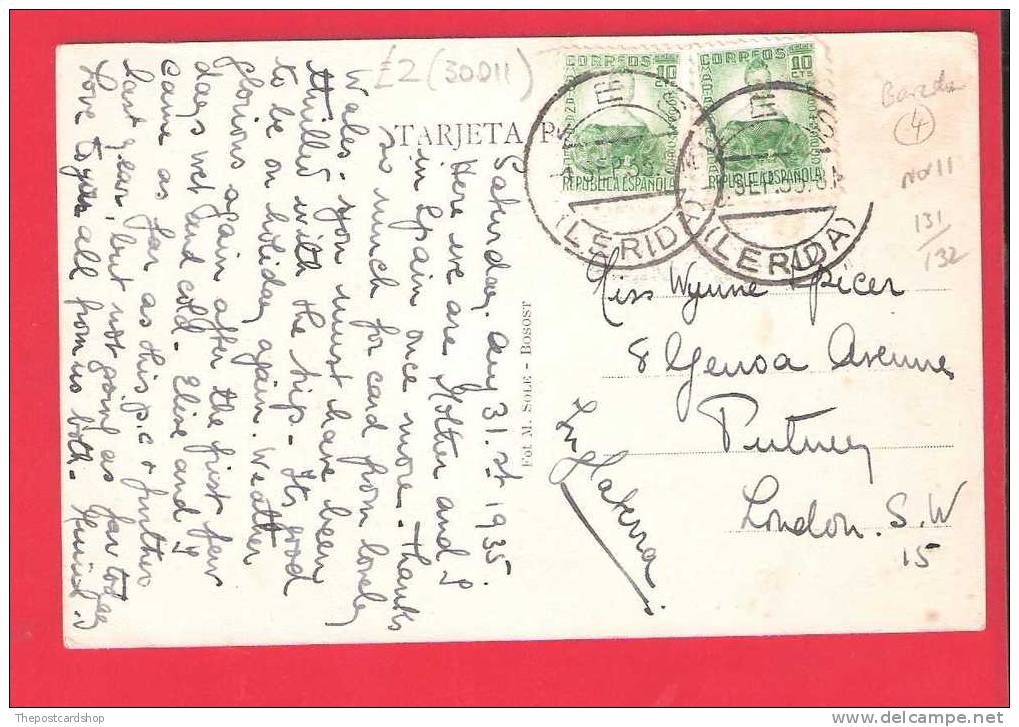 £2 (30011)
TARJETA P
CORREOS
10 CTS
REPUBLICA ESPAÑOLA
CORREOS
10 CTS
REPUBLICA ESPAÑOLA
SEP.35.
(LERIDA)
SEP.35.
(LERIDA)
4
Nov 11
131/
132
Saturday. Aug 31.st 1935.
Here we are Mother and I
in Spain once more. Thanks
so much for card from lovely
Wales - you must have been
thrilled with the trip - Its good
to be on holiday again. Weather
glorious again after the first few
days wet and cold. Elise and I
came as far as this p.c & further
last year, but not going as far today
Love to you all from us both.
Fot. M. SOLE - BOSOST
Miss Wynne Spicer
8 Genoa Avenue
Putney
London. S.W
15
Inglaterra
Thepostcardshop
delcampe.net